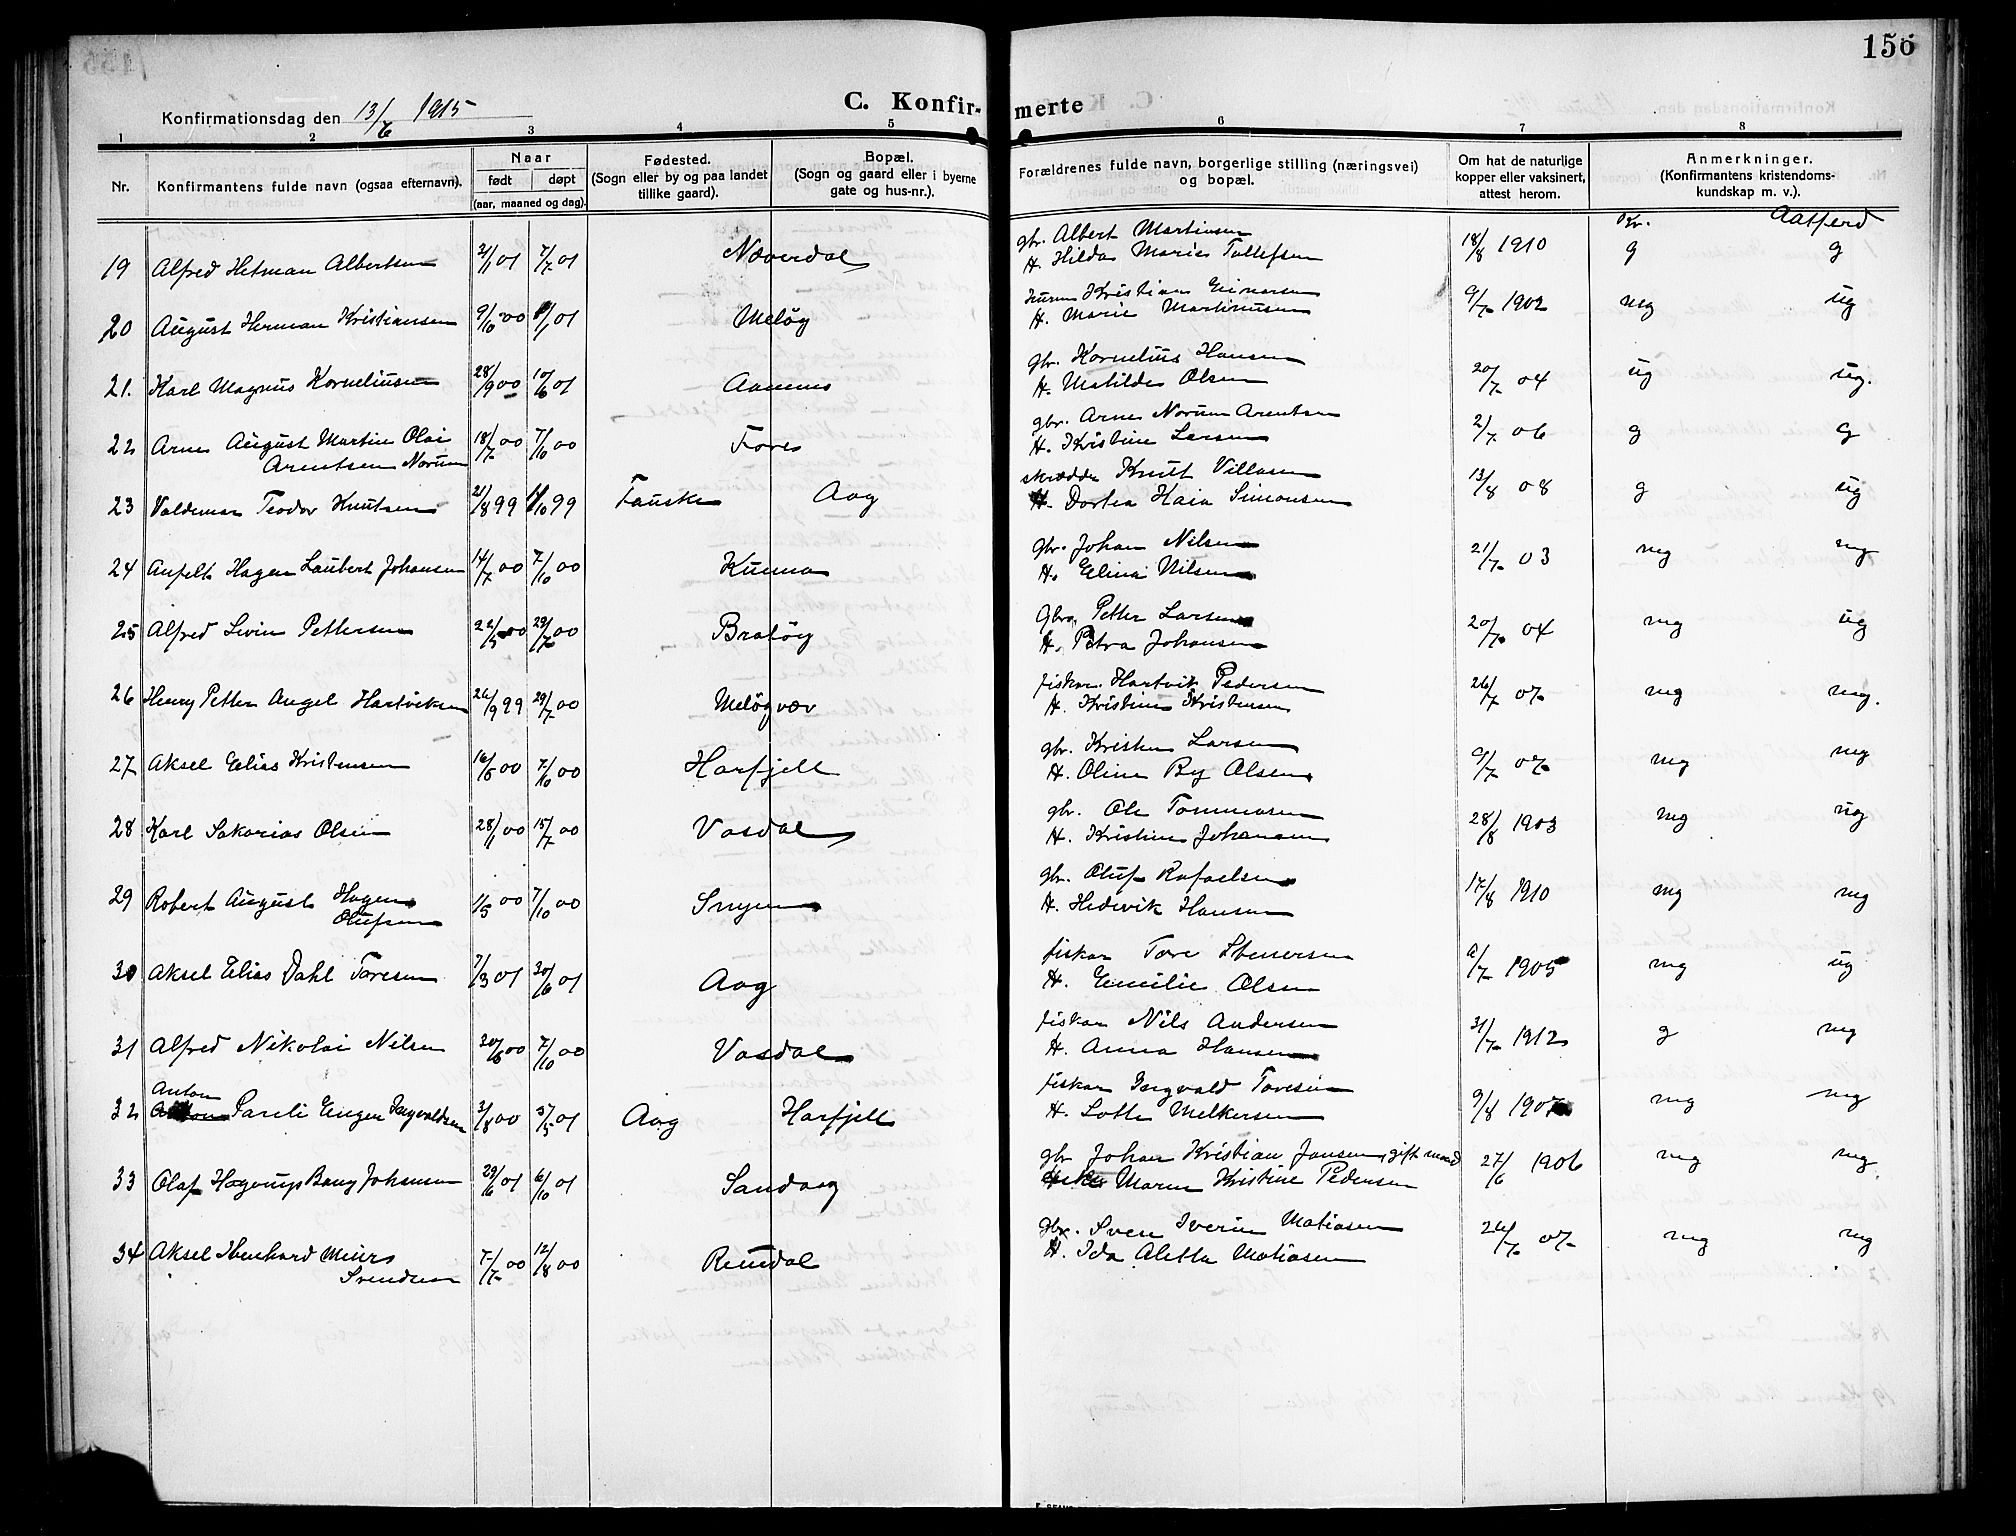 156
C. Konfirmerte
Konfirmationsdag den 13/6 1915
1 2 3 4 5 6 7 8
Nr.
Konfirmantens fulde navn (ogsaa efternavn).
Naar
født døpt
(aar, maaned og dag).
Fødested.
(Sogn eller by og paa landet
tillike gaard).
Bopæl.
(Sogn og gaard eller i byerne
gate og hus-nr.).
Forældrenes fulde navn, borgerlige stilling (næringsvei)
og bopæl.
Om hat de naturlige
kopper eller vaksinert,
attest herom.
Anmerkninger.
(Konfirmantens kristendoms-
kundskap m. v.).
Kr. Aatferd
19 Alfred Hetman Albertsen 2/1 01 7/7 01 Næverdal gbr. Albert Martinsen 18/8 1910 g g
H. Hilda Marie Tollefsen
20 August Herman Kristiansen 9/10 00 1/1 01 Meløy Kristian Einarsen 9/7 1902 mg ug
H. Marie Martinusen
21. Karl Magnus Korneliusen 28/9 00 10/6 01 Aamnes gbr. Kornelius Hansen 20/7 04 ug ug.
H. Matilde Olsen
22 Arne August Martin Olai 18/7 00 7/10 00 Fores gbr. Arne Norum Arentsen 2/7 06 g g
Arentsen Norum H. Kristine Larsen
23 Valdemar Teodor Knutsen 21/8 99 1/10 99 Fauske Aag skrædder Knut Villasen 13/8 08 g ug
H. Dortea Kaia Simonsen
24 Anfelt Hagen Laubert Johansen 14/7 00 7/10 00 Kunna gbr. Johan Nilsen 21/7 03 mg mg
H. Elina Nilsen
25 Alfred Levin Pettersen 22/5 00 29/7 00 Bratøy Gbr. Petter Larsen 20/7 04 mg ug
H. Petra Johansen
26 Henry Petter Angel Hartviksen 26/9 99 29/7 00 Meløyvær fisker Hartvik Pedersen 26/7 07 mg mg.
H. Kristine Kristensen
27 Aksel Elias Kristensen 16/5 00 7/10 00 Harfjell gbr. Kristen Larsen 9/7 07 mg mg
H. Oline By Olsen
28 Karl Sakarias Olsen 28/1 00 15/7 00 Vasdal gbr. Ole Tommasen 28/8 1903 mg ug
H. Kristine Johansen
29 Robert August Hagen 1/5 00 7/10 00 gbr. Oluf Rafaelsen 17/8 1910 mg mg
Olufsen H. Hedevik Hansen
30 Aksel Elias Dahl Toresen 7/3 01 30/6 01 Aag fisker Tore Stenersen /7 1905 mg ug
H. Emilie Olsen
31 Alfred Nikolai Nilsen 20/6 00 7/10 00 Vasdal fisker Nils Andersen 31/7 1912 g mg
H. Anna Hansen
Anton
32 Pareli Eugen Ingvaldsen 3/8 00 5/5 01 Aag Harfjell fisker Ingvald Toresen 9/8 1907 mg mg
H. Lotte Melkersen
33 Olaf Hagerup Bang Johansen 29/6 01 6/10 01 Sandaag gbr Johan Kristian Jansen, gift mand 27/6 1906 mg mg.
Maren Kristine Pedersen
34 Aksel Ibenhard Meier 7/7 00 12/8 00 Reindal gbr. Sven Iverin Matiasen 26/7 07 mg mg
Svendsen H. Ida Aletta Matiasen